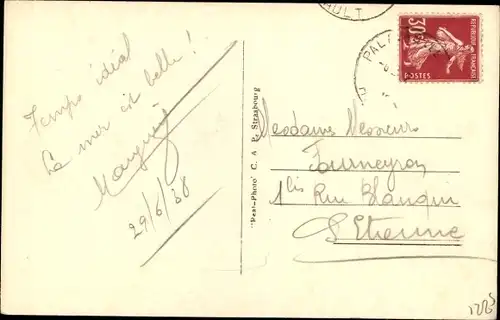 Temps idéal
La mer est belle !
29/6/38
"Real-Photo" C. A. P. Strasbourg
HULT
PALA
30c
REPUBLIQUE FRANÇAISE
POSTES
Mesdames Messieurs
Fourneyron
1bis Rue
St Etienne
1225